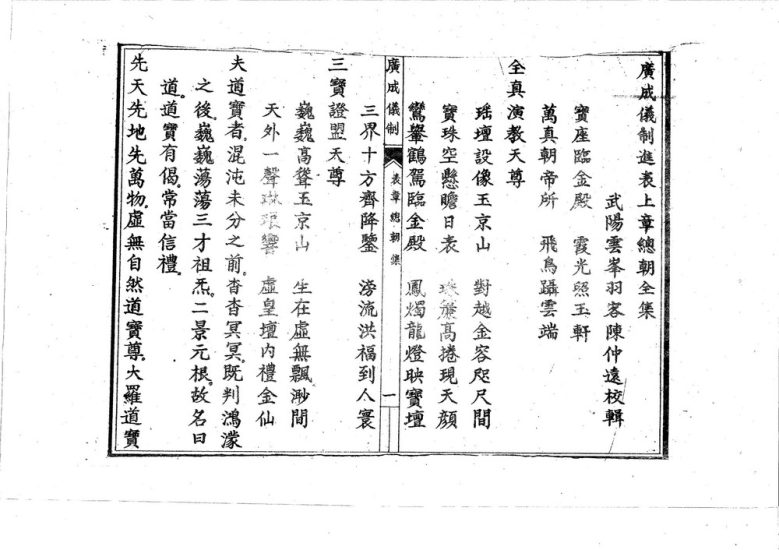 廣成儀制進表上章總朝全集
武陽雲峯羽客陳仲遠校輯
寶座臨金殿 霞光照玉軒
萬真朝帝所 飛舄躡雲端
全真演教天尊
瑶壇設像玉京山 對越金容咫尺間
寶珠空懸瞻日表 珠簾高捲現天顔
鸞轝鶴駕臨金殿 鳳燭龍燈映寶壇
廣成儀制 表章總朝集 一
三界十方齊降鑒 滂流洪福到人寰
三寶證盟天尊
巍巍高聳玉京山 生在虛無飄渺間
天外一聲琳琅響 虛皇壇内禮金仙
夫道寶者。混沌未分之前。杳杳冥冥。既判鴻濛
之後。巍巍蕩蕩三才祖炁。二景元根。故名曰
道。道寶有偈。常當信禮。
先天先地先萬物。虛無自然道寶尊。大羅道寶